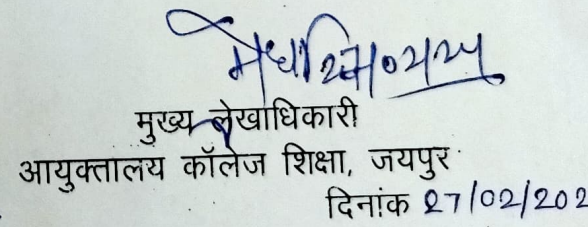 मुख्य लेखाधिकारी
आयुक्तालय कॉलेज शिक्षा, जयपुर
दिनांक 27/02/202